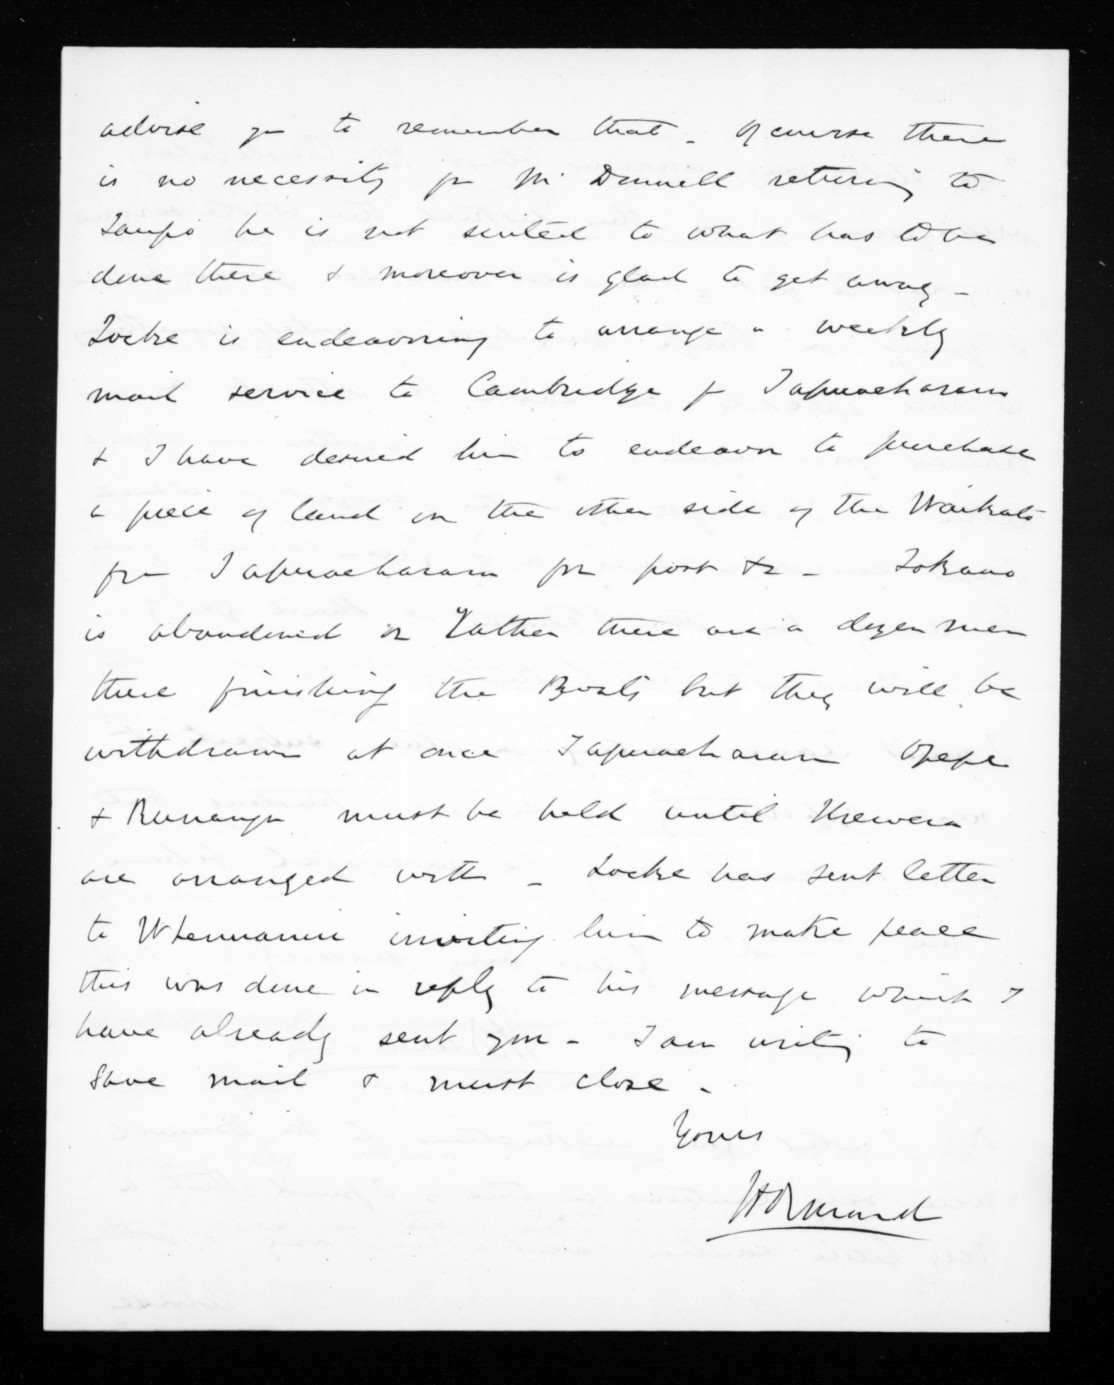 advise you to remember that - Of course there
is no necessity for McDonnell returning to
Taupo he is not suited to what has to be
done there & moreover is glad to get away -
Locke is endeavouring to arrange a weekly
mail service to Cambridge fr Tapuaeharuru
& I have desired him to endeavor to purchase
a piece of land on the other side of the Waikato
from Tapuaeharuru for post &c - Tokano
is abandoned or rather there are a dozen men
there finishing the Boats but they will be
withdrawn at once Tapuaeharuru Opepe
& Runanga must be held until Urewera
are arranged with - Locke has sent letter
to inviting him to make peace
this was done in reply to his message which I
have already sent you - I am writing to
save mail & must close -
Yours
JDOrmond